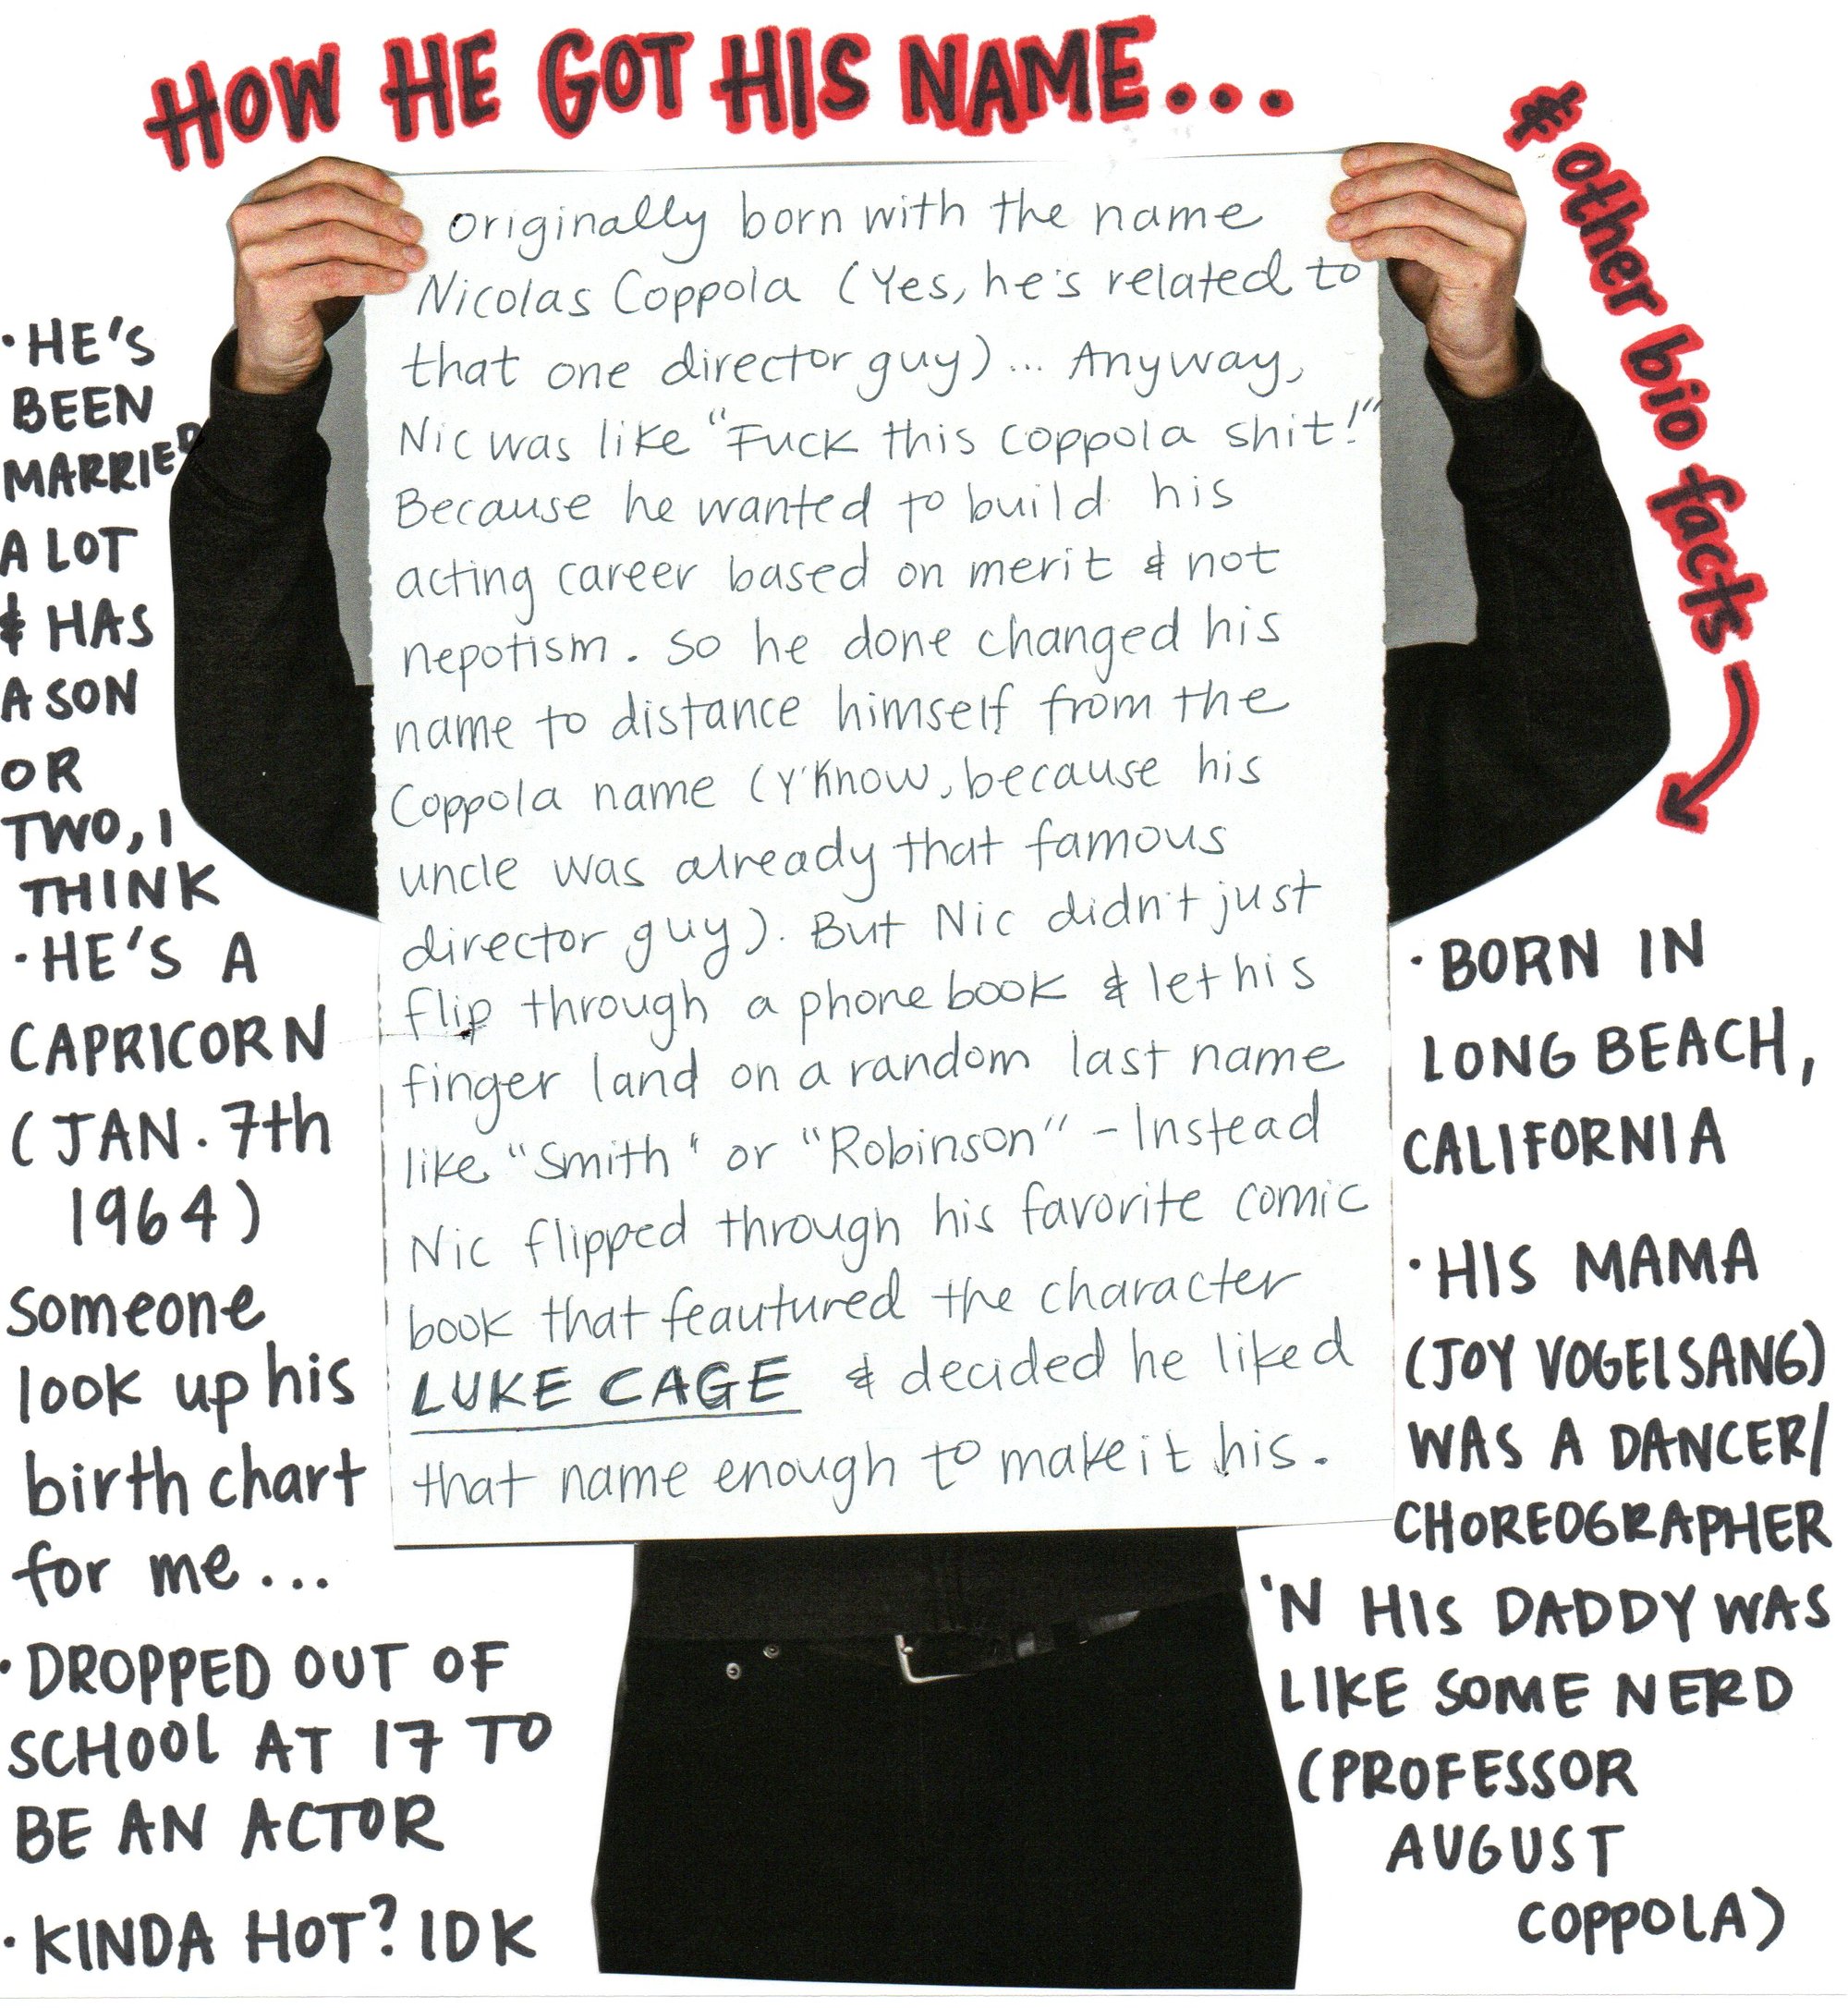 HOW HE GOT HIS NAME...
& other bio facts
originally born with the name
Nicolas Coppola (Yes, he's related to
that one director guy)... Anyway,
Nic was like "Fuck this coppola shit!"
Because he wanted to build his
acting career based on merit & not
nepotism. So he done changed his
name to distance himself from the
Coppola name (Y'Know, because his
uncle was already that famous
director guy). But Nic didn't just
flip through a phone book & let his
finger land on a random last name
like "Smith" or "Robinson" - Instead
Nic flipped through his favorite comic
book that feautured the character
LUKE CAGE & decided he liked
that name enough to make it his.
·HE'S
BEEN
MARRIED
A LOT
& HAS
A SON
OR
TWO, I
THINK
·HE'S A
CAPRICORN
(JAN. 7th
1964)
Someone
look up his
birth chart
for me...
·DROPPED OUT OF
SCHOOL AT 17 TO
BE AN ACTOR
·KINDA HOT? IDK
·BORN IN
LONG BEACH,
CALIFORNIA
·HIS MAMA
(JOY VOGELSANG)
WAS A DANCER/
CHOREOGRAPHER
'N HIS DADDY WAS
LIKE SOME NERD
(PROFESSOR
AUGUST
COPPOLA)